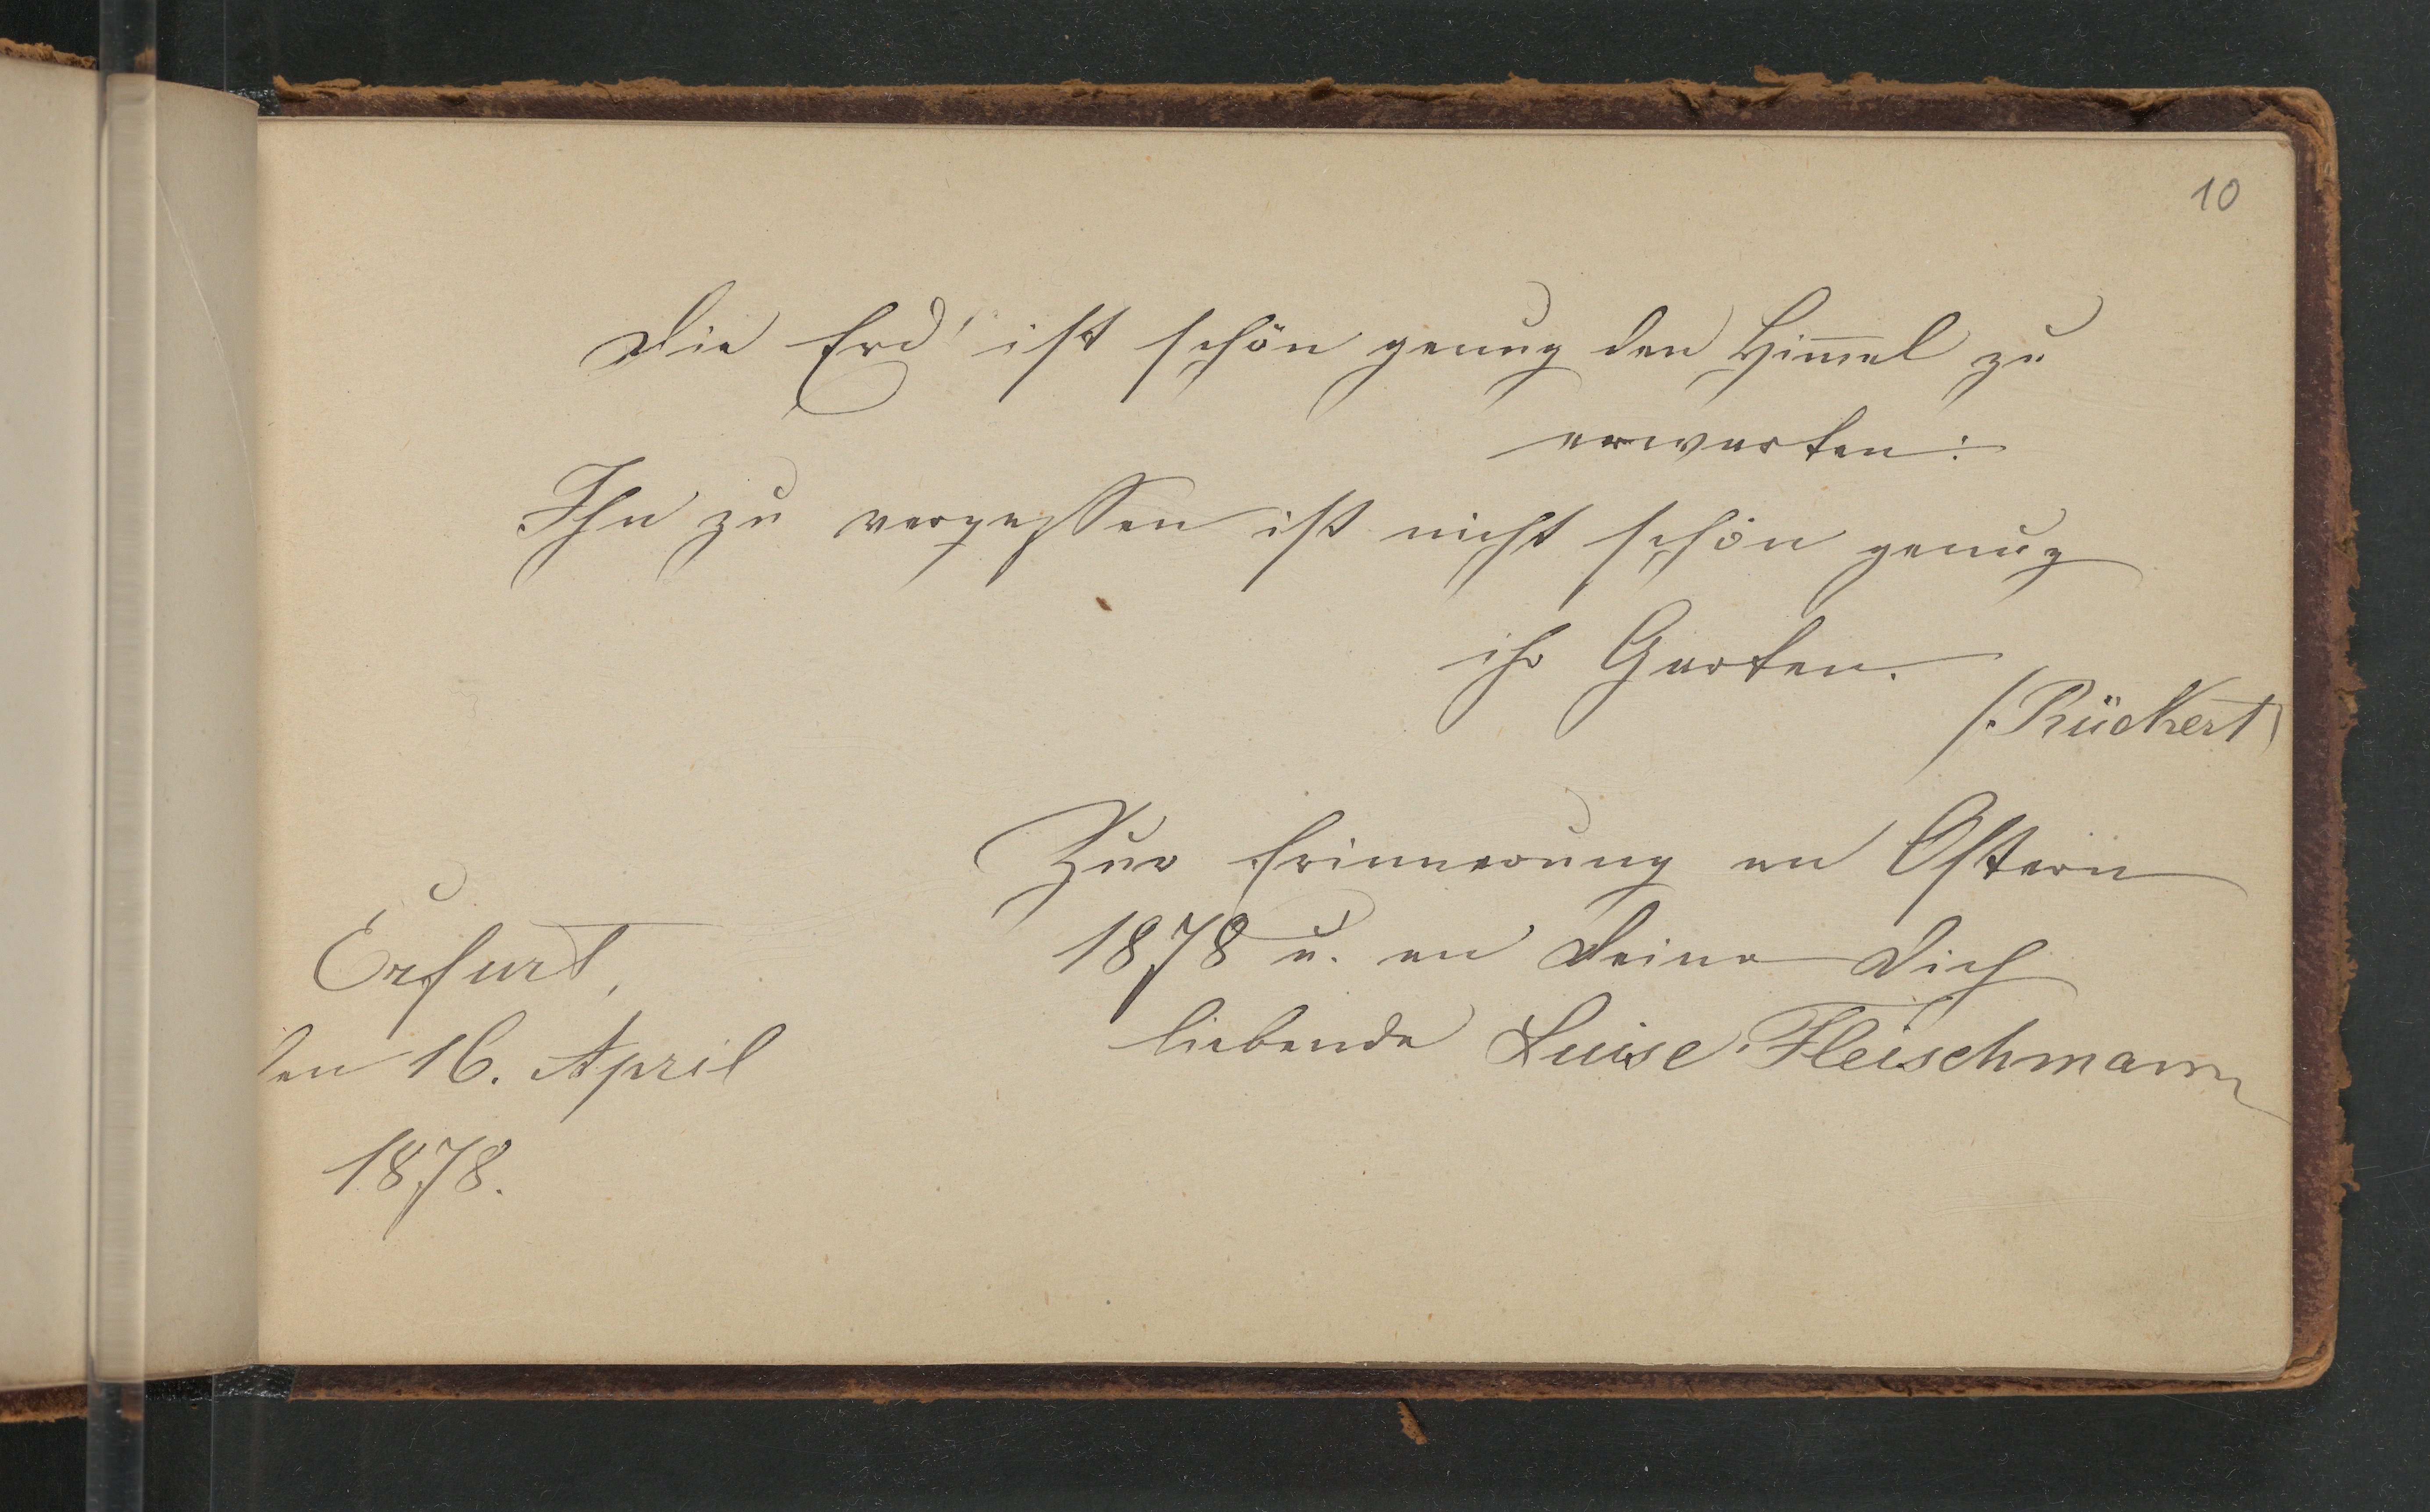 10
Die Erd' ist schön genug den Him̅el zu
erwarten:
Ihn zu vergessen ist nicht schön genug
ihr Garten.
(. Rückert)
Zur Erinnerung an Ostern
1878 u. an Deine Dich
liebende Luise Fleischmann
Erfurt,
den 16. April
1878.